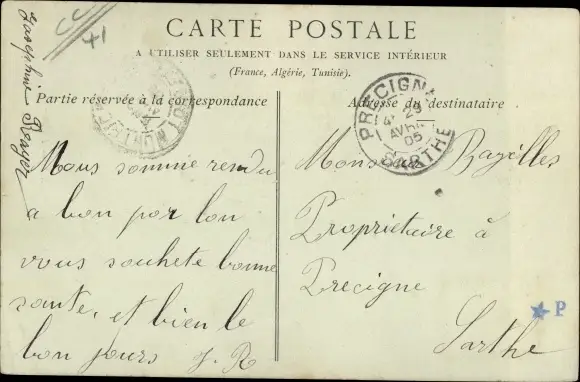 CC
41
CARTE POSTALE
A UTILISER SEULEMENT DANS LE SERVICE INTÉRIEUR
(France, Algérie, Tunisie).
Partie réservée à la correspondance
Adresse du destinataire
Josephine
Nous somme rendu
a bon por lon
vous souhete bonne
sante, et bien le
bon jours J. R
PRECIGN
29
AVRIL
05
SARTHE
Mons Bazelles
Proprietaire à
Precigne
Sarthe
P